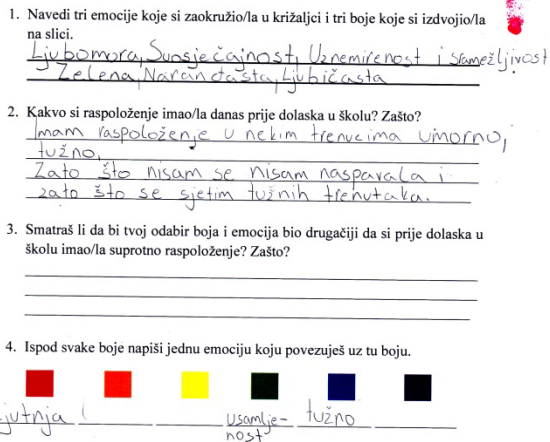 1. Navedi tri emocije koje si zaokružio/la u križaljci i tri boje koje si izdvojio/la
na slici.
Ljubomora, Suosjećajnost, Uznemirenost i sramežljivost
Zelena, Narančasta, Ljubičasta
2. Kakvo si raspoloženje imao/la danas prije dolaska u školu? Zašto?
Imam raspoloženje u nekim trenucima umorno,
tužno,
Zato što nisam se nisam naspavala i
zato što se sjetim tužnih trenutaka.
3. Smatraš li da bi tvoj odabir boja i emocija bio drugačiji da si prije dolaska u
školu imao/la suprotno raspoloženje? Zašto?
4. Ispod svake boje napiši jednu emociju koju povezuješ uz tu boju.
jutnja usamlje- tužno
nost